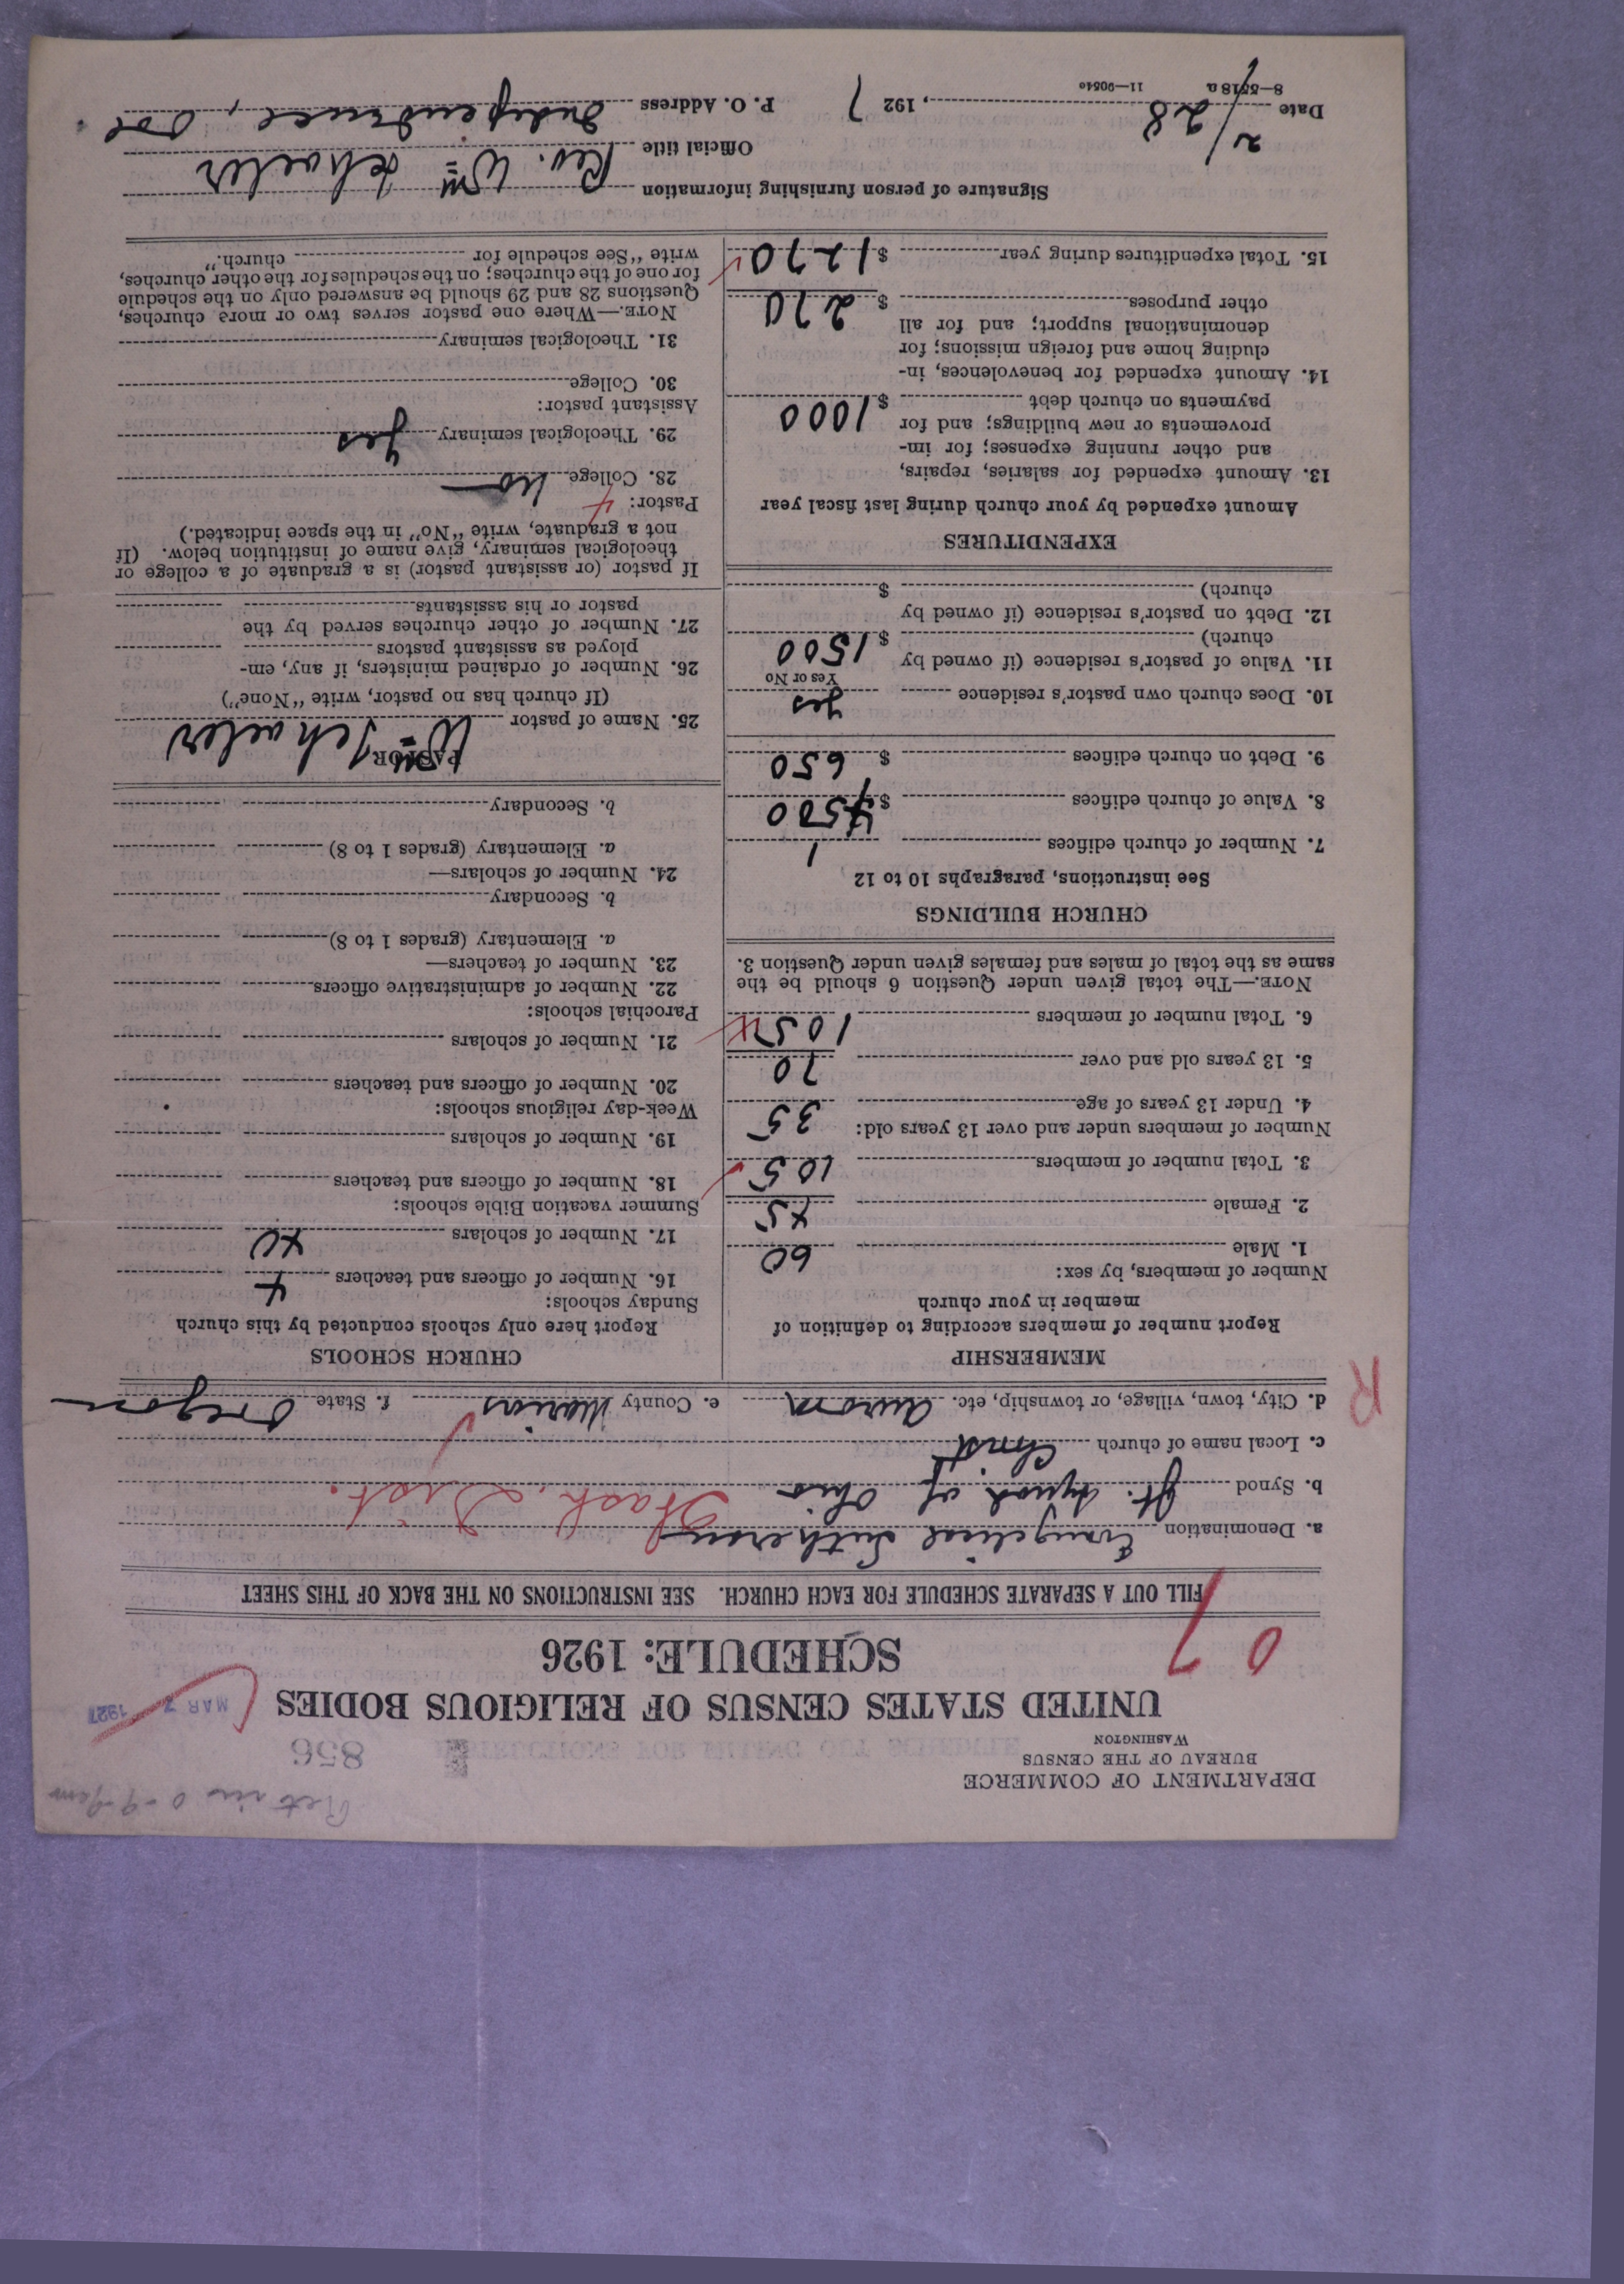 Ret in 0-9-
DEPARTMENT OF COMMERCE
BUREAU OF THE CENSUS
WASHINGTON
856
UNITED STATES CENSUS OF RELIGIOUS BODIES
MAR 7 1927
SCHEDULE: 1926
07
FILL OUT A SEPARATE SCHEDULE FOR EACH CHURCH. SEE INSTRUCTIONS ON THE BACK OF THIS SHEET
a. Denomination Evangelical Lutheran
b. Synod Jt. Synod of Ohio Wash. Dist.
c. Local name of church Christ
d. City, town, village, or township, etc. Aurora e. County Marion f. State Oregon
R
MEMBERSHIP
Report number of members according to definition of
member in your church
Number of members, by sex:
1. Male 60
2. Female 45
3. Total number of members 105
Number of members under and over 13 years old:
4. Under 13 years of age 35
5. 13 years old and over 70
6. Total number of members 105
NOTE.—The total given under Question 6 should be the
same as the total of males and females given under Question 3.
CHURCH BUILDINGS
See instructions, paragraphs 10 to 12
7. Number of church edifices 1
8. Value of church edifices $ 4500
9. Debt on church edifices $ 650
10. Does church own pastor's residence yes
Yes or No
11. Value of pastor's residence (if owned by
church) $ 1500
12. Debt on pastor's residence (if owned by
church) $
EXPENDITURES
Amount expended by your church during last fiscal year
13. Amount expended for salaries, repairs,
and other running expenses; for im-
provements or new buildings; and for
payments on church debt $ 1000
14. Amount expended for benevolences, in-
cluding home and foreign missions; for
denominational support; and for all
other purposes $ 270
15. Total expenditures during year $ 1270
CHURCH SCHOOLS
Report here only schools conducted by this church
Sunday schools:
16. Number of officers and teachers 4
17. Number of scholars 40
Summer vacation Bible schools:
18. Number of officers and teachers
19. Number of scholars
Week-day religious schools:
20. Number of officers and teachers
21. Number of scholars
Parochial schools:
22. Number of administrative officers
23. Number of teachers—
a. Elementary (grades 1 to 8)
b. Secondary
24. Number of scholars—
a. Elementary (grades 1 to 8)
b. Secondary
PASTOR
25. Name of pastor Wm Schaefer
(If church has no pastor, write "None")
26. Number of ordained ministers, if any, em-
ployed as assistant pastors
27. Number of other churches served by the
pastor or his assistants
If pastor (or assistant pastor) is a graduate of a college or
theological seminary, give name of institution below. (If
not a graduate, write "No" in the space indicated.)
Pastor:
28. College no
29. Theological seminary yes
Assistant pastor:
30. College
31. Theological seminary
NOTE.—Where one pastor serves two or more churches,
Questions 28 and 29 should be answered only on the schedule
for one of the churches; on the schedules for the other churches,
write "See schedule for church."
Signature of person furnishing information Rev. Wm Schaefer
Official title
Date 2/28, 1927 P. O. Address Independence, Ore
8—5518 a 11—90540